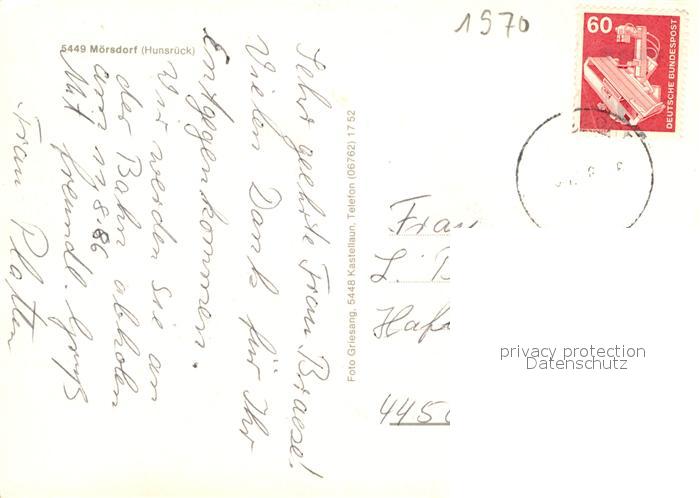 5449 Mörsdorf (Hunsrück)
Sehr geehrte Frau Braese!
Vielen Dank für Ihr
Entgegenkommen.
Wir werden Sie an
der Bahn abholen
am 17.8.86
Mit freundl. Gruß
Frau Platten
Foto Griesang, 5448 Kastellaun, Telefon (06762) 17 52
1970
60
DEUTSCHE BUNDESPOST
Frau
L.
Haf
445
privacy protection
Datenschutz